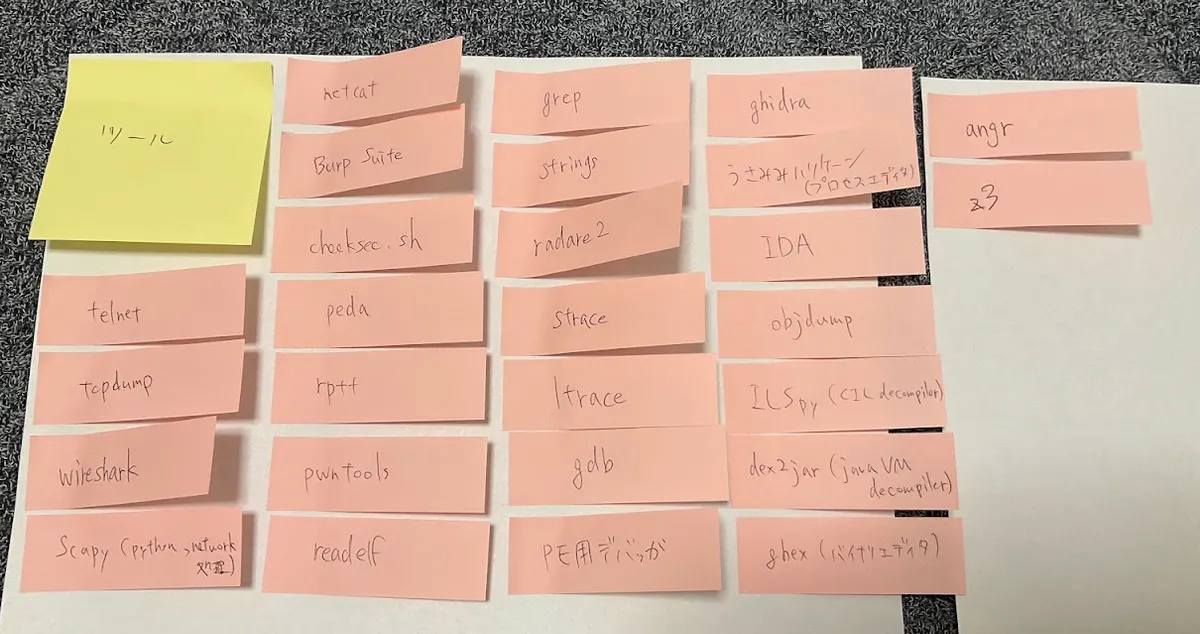 ツール
telnet
tcpdump
wireshark
Scapy (python, network
処理)
netcat
Burp Suite
checksec.sh
peda
rp++
pwntools
readelf
grep
strings
radare2
strace
ltrace
gdb
PE用デバッガ
ghidra
うさみみハリケーン
(プロセスエディタ)
IDA
objdump
ILSpy (CIL decompiler)
dex2jar (java VM
decompiler)
ghex (バイナリエディタ)
angr
z3